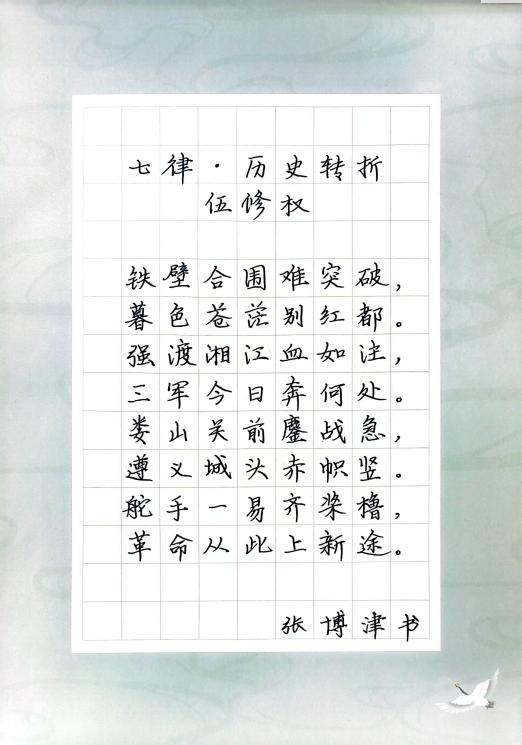 七律·历史转折
伍修权
铁壁合围难突破，
暮色苍茫别红都。
强渡湘江血如注，
三军今日奔何处。
娄山关前鏖战急，
遵义城头赤帜竖。
舵手一易齐桨橹，
革命从此上新途。
张博津书